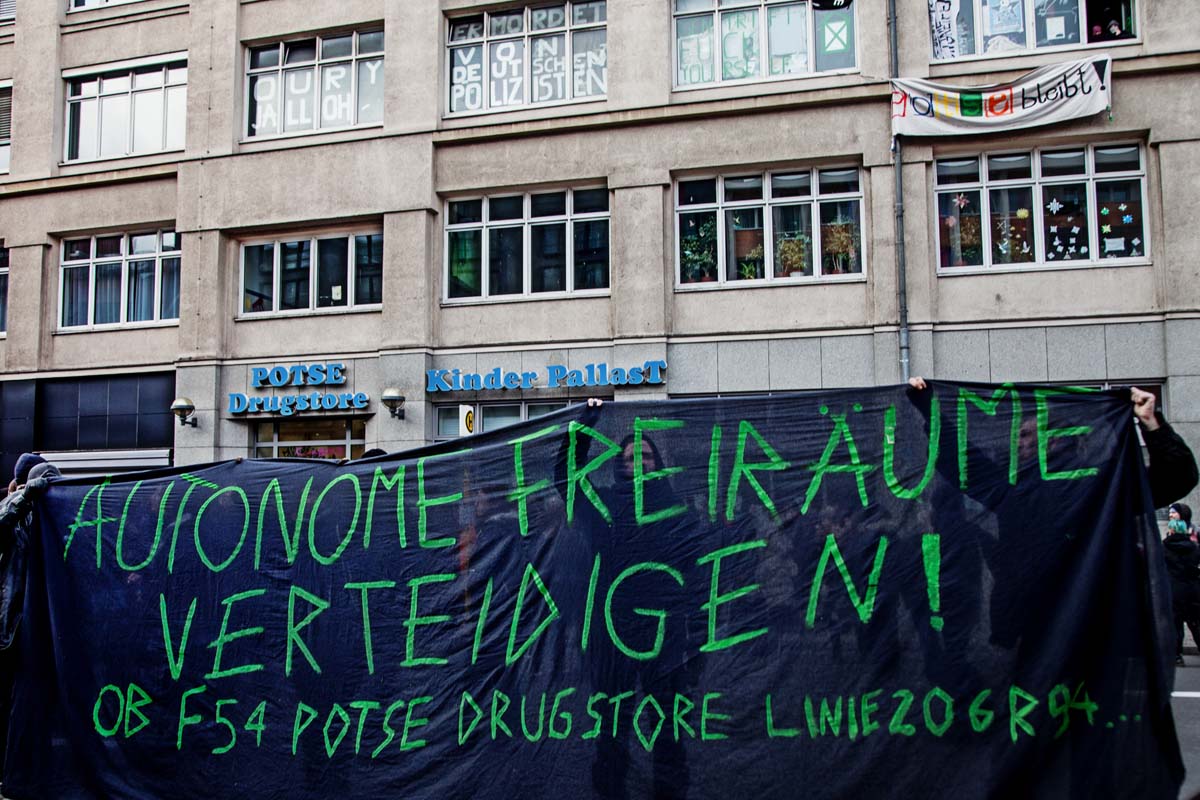 OURY
JALLOH
ERMORDET
VON
DEUTSCHEN
POLIZISTEN
YOURSELF
bleibt!
POTSE
Drugstore
Kinder PallasT
AUTONOME FREIRÄUME
VERTEIDIGEN!
OB F54 POTSE DRUGSTORE LINIE206 R94...